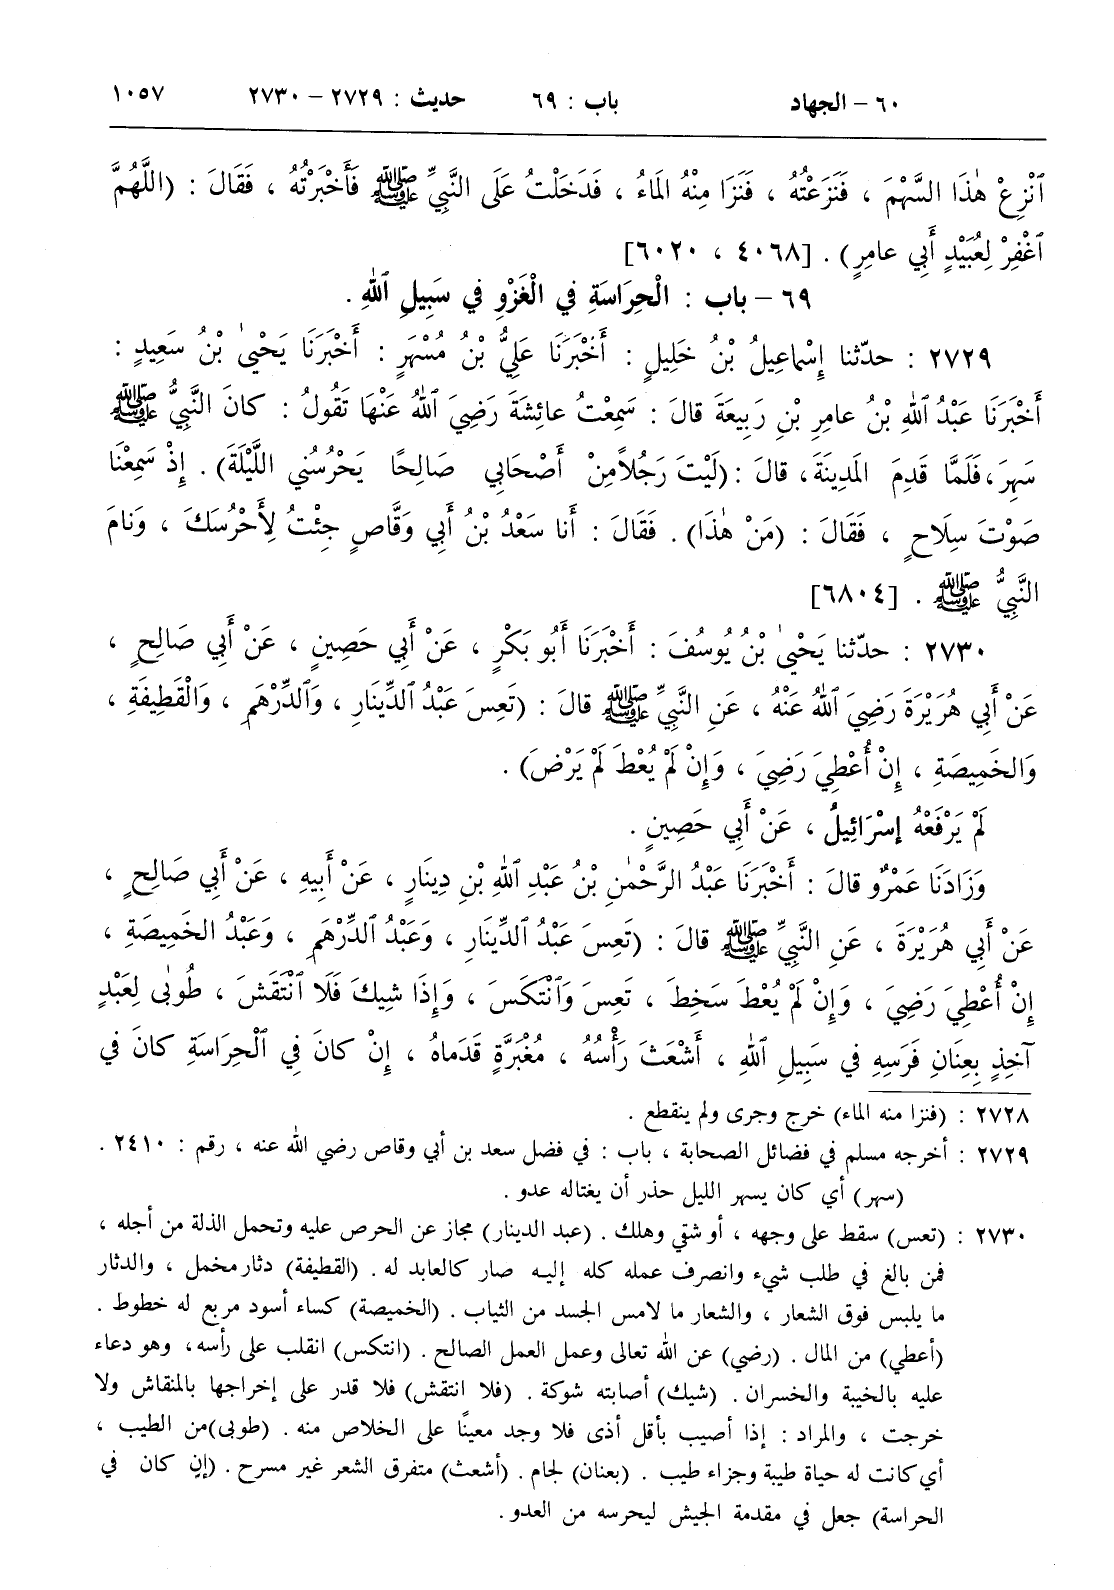 ٦٠ – الجهاد باب : ٦٩ حديث : ٢٧٢٩ – ٢٧٣٠ ١٠٥٧
ٱنْزِعْ هٰذَا السَّهْمَ ، فَنَزَعْتُهُ ، فَنَزَا مِنْهُ المَاءُ ، فَدَخَلْتُ عَلَى النَّبِيِّ ﷺ فَأَخْبَرْتُهُ ، فَقَالَ : (اللَّهُمَّ
ٱغْفِرْ لِعُبَيْدٍ أَبِي عامِرٍ) . [٤٠٦٨ ، ٦٠٢٠]
٦٩ – باب : الْحِرَاسَةِ فِي الْغَزْوِ فِي سَبِيلِ ٱللهِ .
٢٧٢٩ : حدّثنا إِسْماعِيلُ بْنُ خَلِيلٍ : أَخْبَرَنَا عَلِيُّ بْنُ مُسْهِرٍ : أَخْبَرَنَا يَحْيىٰ بْنُ سَعِيدٍ :
أَخْبَرَنَا عَبْدُ ٱللهِ بْنُ عامِرِ بْنِ رَبِيعَةَ قالَ : سَمِعْتُ عائِشَةَ رَضِيَ ٱللهُ عَنْهَا تَقُولُ : كانَ النَّبِيُّ ﷺ
سَهِرَ ، فَلَمَّا قَدِمَ المَدِينَةَ ، قالَ : (لَيْتَ رَجُلاً مِنْ أَصْحَابِي صَالِحًا يَحْرُسُنِي اللَّيْلَةَ) . إِذْ سَمِعْنَا
صَوْتَ سِلَاحٍ ، فَقَالَ : (مَنْ هٰذَا) . فَقَالَ : أَنا سَعْدُ بْنُ أَبِي وَقَّاصٍ جِئْتُ لِأَحْرُسَكَ ، وَنامَ
النَّبِيُّ ﷺ . [٦٨٠٤]
٢٧٣٠ : حدّثنا يَحْيىٰ بْنُ يُوسُفَ : أَخْبَرَنَا أَبُو بَكْرٍ ، عَنْ أَبِي حَصِينٍ ، عَنْ أَبِي صَالِحٍ ،
عَنْ أَبِي هُرَيْرَةَ رَضِيَ ٱللهُ عَنْهُ ، عَنِ النَّبِيِّ ﷺ قالَ : (تَعِسَ عَبْدُ ٱلدِّينَارِ ، وَٱلدِّرْهَمِ ، وَالْقَطِيفَةِ ،
وَالخَمِيصَةِ ، إِنْ أُعْطِيَ رَضِيَ ، وَإِنْ لَمْ يُعْطَ لَمْ يَرْضَ) .
لَمْ يَرْفَعْهُ إِسْرَائِيلُ ، عَنْ أَبِي حَصِينٍ .
وَزَادَنَا عَمْرٌو قالَ : أَخْبَرَنَا عَبْدُ الرَّحْمٰنِ بْنُ عَبْدِ ٱللهِ بْنِ دِينَارٍ ، عَنْ أَبِيهِ ، عَنْ أَبِي صَالِحٍ ،
عَنْ أَبِي هُرَيْرَةَ ، عَنِ النَّبِيِّ ﷺ قالَ : (تَعِسَ عَبْدُ ٱلدِّينَارِ ، وَعَبْدُ ٱلدِّرْهَمِ ، وَعَبْدُ الخَمِيصَةِ ،
إِنْ أُعْطِيَ رَضِيَ ، وَإِنْ لَمْ يُعْطَ سَخِطَ ، تَعِسَ وَٱنْتَكَسَ ، وَإِذَا شِيكَ فَلَا ٱنْتَقَشَ ، طُوبٰى لِعَبْدٍ
آخِذٍ بِعِنَانِ فَرَسِهِ فِي سَبِيلِ ٱللهِ ، أَشْعَثَ رَأْسُهُ ، مُغْبَرَّةٍ قَدَماهُ ، إِنْ كانَ فِي ٱلْحِرَاسَةِ كانَ فِي
٢٧٢٨ : (فنزا منه الماء) خرج وجرى ولم ينقطع .
٢٧٢٩ : أخرجه مسلم في فضائل الصحابة ، باب : في فضل سعد بن أبي وقاص رضي الله عنه ، رقم : ٢٤١٠ .
(سهر) أي كان يسهر الليل حذر أن يغتاله عدو .
٢٧٣٠ : (تعس) سقط على وجهه ، أو شقي وهلك . (عبد الدينار) مجاز عن الحرص عليه وتحمل الذلة من أجله ،
فمن بالغ في طلب شيء وانصرف عمله كله إليه صار كالعابد له . (القطيفة) دثار مخمل ، والدثار
ما يلبس فوق الشعار ، والشعار ما لامس الجسد من الثياب . (الخميصة) كساء أسود مربع له خطوط .
(أعطي) من المال . (رضي) عن الله تعالى وعمل العمل الصالح . (انتكس) انقلب على رأسه ، وهو دعاء
عليه بالخيبة والخسران . (شيك) أصابته شوكة . (فلا انتقش) فلا قدر على إخراجها بالمنقاش ولا
خرجت ، والمراد : إذا أصيب بأقل أذى فلا وجد معينًا على الخلاص منه . (طوبى) من الطيب ،
أي كانت له حياة طيبة وجزاء طيب . (بعنان) لجام . (أشعث) متفرق الشعر غير مسرح . (إن كان في
الحراسة) جعل في مقدمة الجيش ليحرسه من العدو .